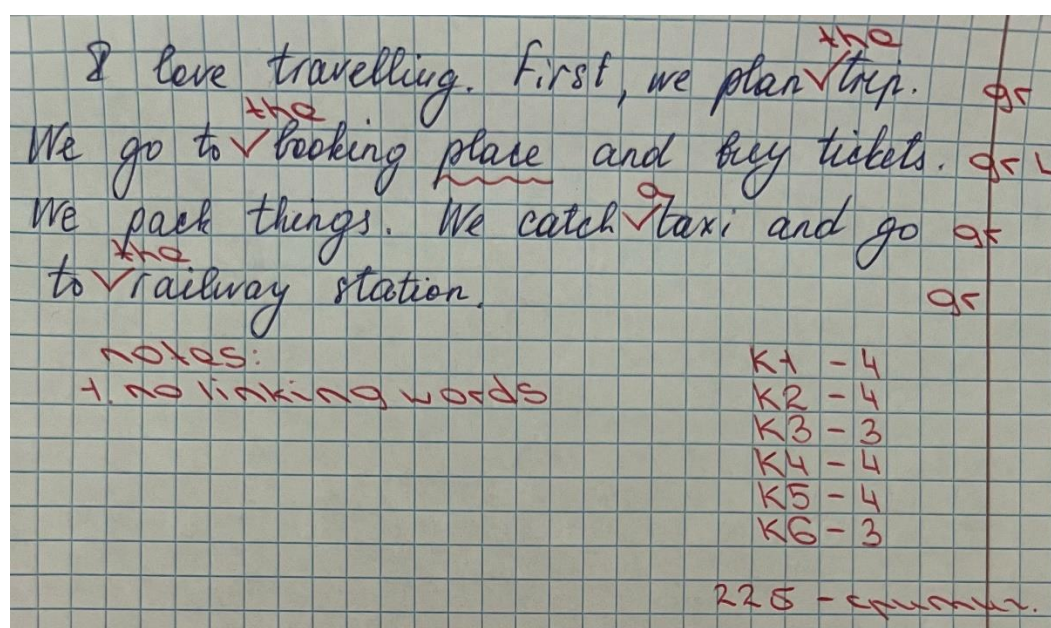 the
I love travelling. First, we plan √ trip. gr
the
We go to √ booking place and buy tickets. gr L
a
We pack things. We catch √ taxi and go gr
the
to √ railway station. gr
notes:
1. no linking words
K1 - 4
K2 - 4
K3 - 3
K4 - 4
K5 - 4
K6 - 3
22б -